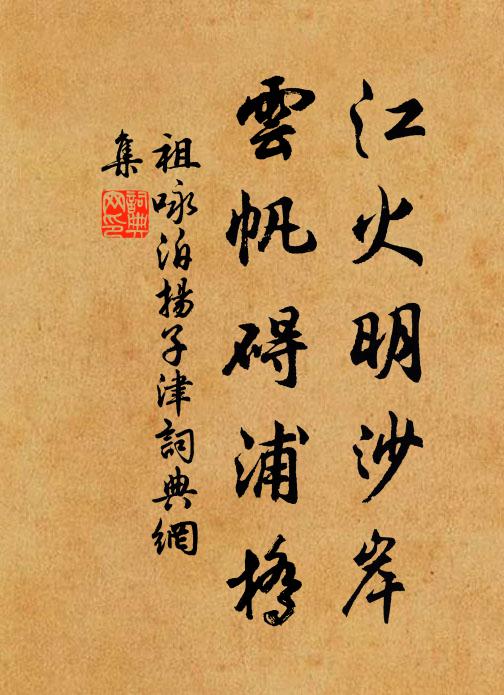 江火明沙岸
雲帆碍浦橋
祖咏泊揚子津詞典網
集
詞典
网印